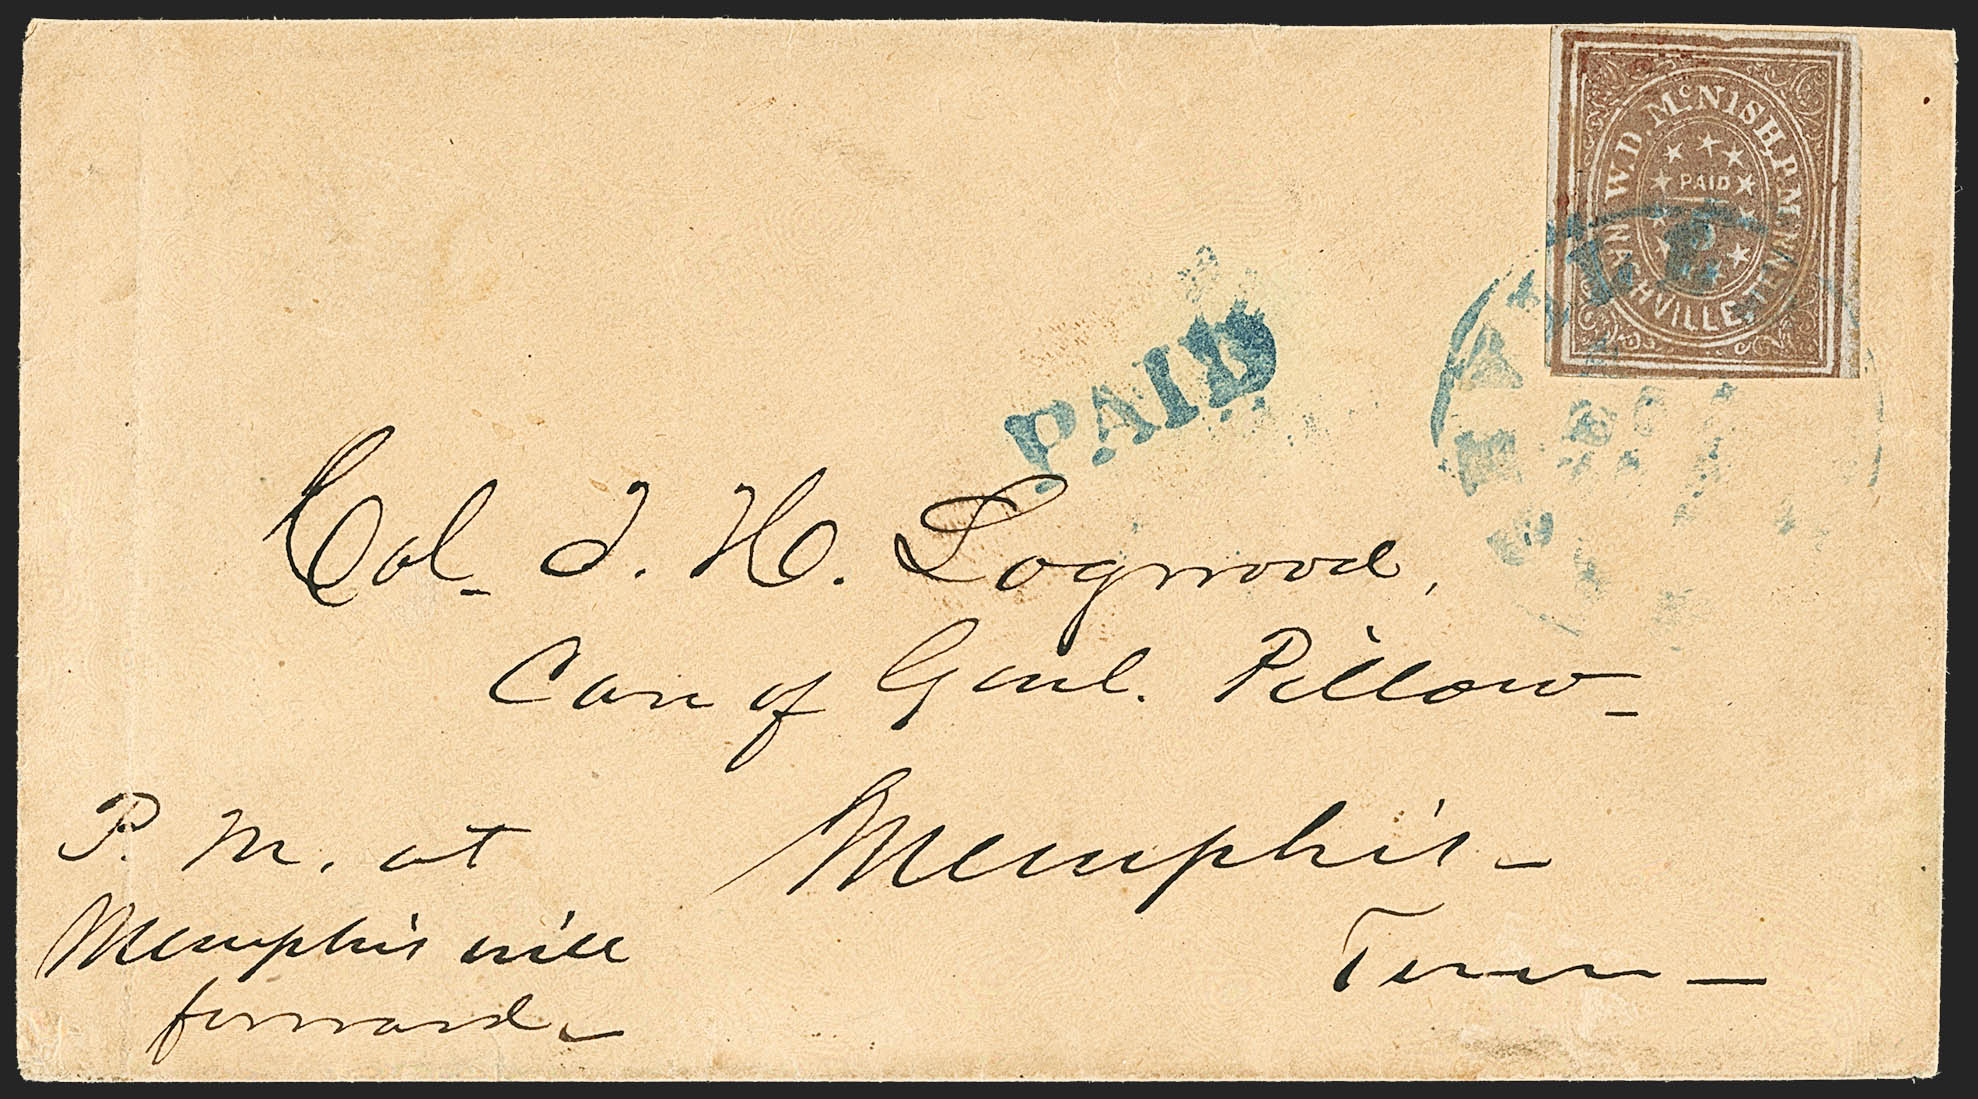 W.D. McNISH, P.M.
PAID
5
NASHVILLE, TENN.
PAID
Col. T. H. Logwood,
Care of Genl. Pillow
Memphis
Tenn
P. M. at
Memphis will
forward